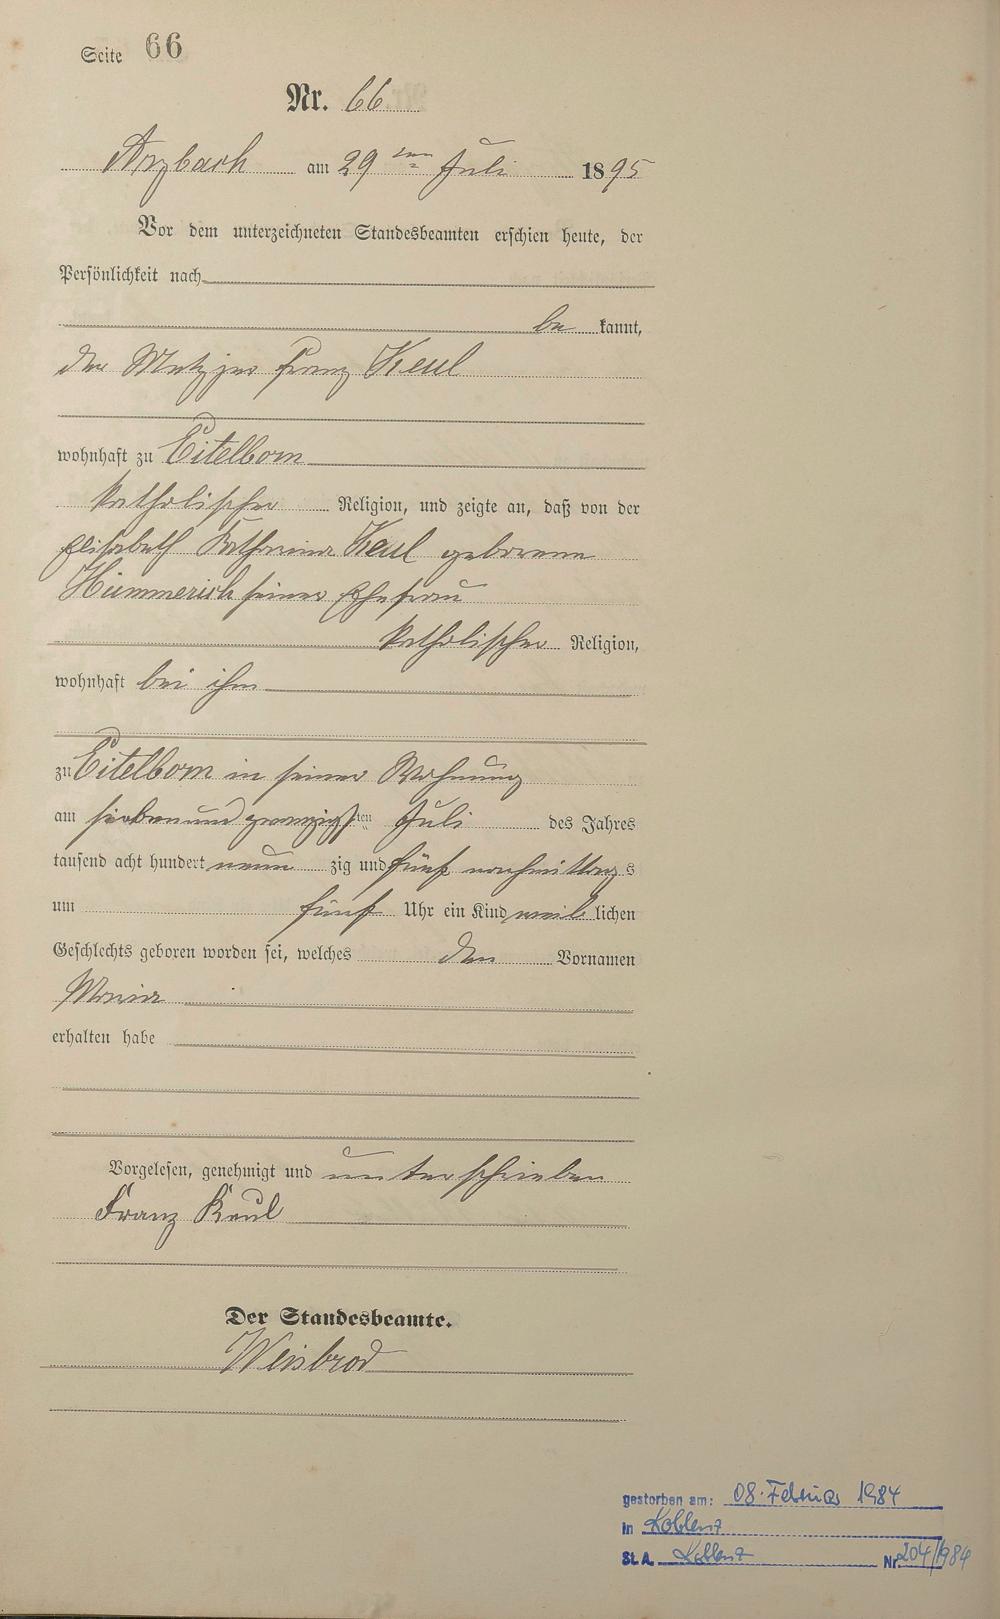 Seite 66
Nr. 66
Arzbach am 29ten Juli 1895
Vor dem unterzeichneten Standesbeamten erschien heute, der
Persönlichkeit nach
be kannt,
der Metzger Franz Keul
wohnhaft zu Eitelborn
katholischer Religion, und zeigte an, daß von der
Elisabeth Katharina Keul geborene
Hümmerich seiner Ehefrau
katholischer Religion,
wohnhaft bei ihm
zu Eitelborn in seiner Wohnung
am siebenundzwanzigsten Juli des Jahres
tausend acht hundert neun zig und fünf nachmittags
um fünf Uhr ein Kind weib lichen
Geschlechts geboren worden sei, welches den Vornamen
Maria
erhalten habe
Vorgelesen, genehmigt und unterschrieben
Franz Keul
Der Standesbeamte.
Weisbrod
gestorben am: 08. Februar 1984
in Koblenz
St.A. Koblenz Nr. 204/1984